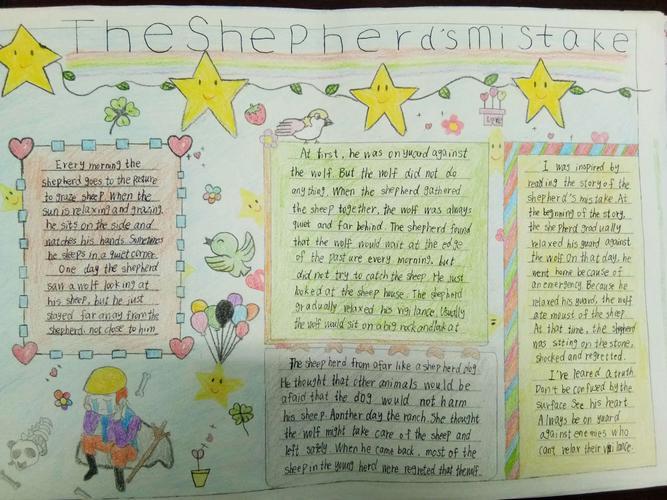 The Shepherd's mistake
Love
Every morning the
shepherd goes to the pasture
to graze sheep. When the
sun is relaxing and grazing.
he sits on the side and
watches his hands. Sometimes
he sleeps in a quiet corner.
One day the shepherd
saw a wolf looking at
his sheep, but he just
stayed far away from the
shepherd, not close to him
At first, he was on guard against
the wolf. But the wolf did not do
any thing. When the shepherd gathered
the sheep together, the wolf was always
quiet and far behind. The shepherd found
that the wolf would wait at the edge
of the pasture every morning, but
did not try to catch the sheep. He just
looked at the sheep house. The shepherd
gradually relaxed his vigilance. Usually
the wolf would sit on a big rock and look at
The sheepherd from afar like a shepherd dog.
He thought that other animals would be
afaid that the dog would not harm
his sheep. Aonther day the ranch. She thought
the wolf might take care of the sheep and
left safely. When he came back, most of the
sheep in the young herd were regreted that the wolf.
I was inspired by
reading the story of the
shepherd's mistake. At
the beginning of the story,
the shepherd gradually
relaxed his guard against
the wolf on that day, he
went home because of
an emergency. Because he
relaxed his guard, the wolf
ate moust of the sheep.
At that time, the shepherd
was sitting on the stone,
shocked and regretted.
I've leared a truth.
Don't be confused by the
surface. See his heart.
Always be on guard
against enemies who
can't relax their vigilance.